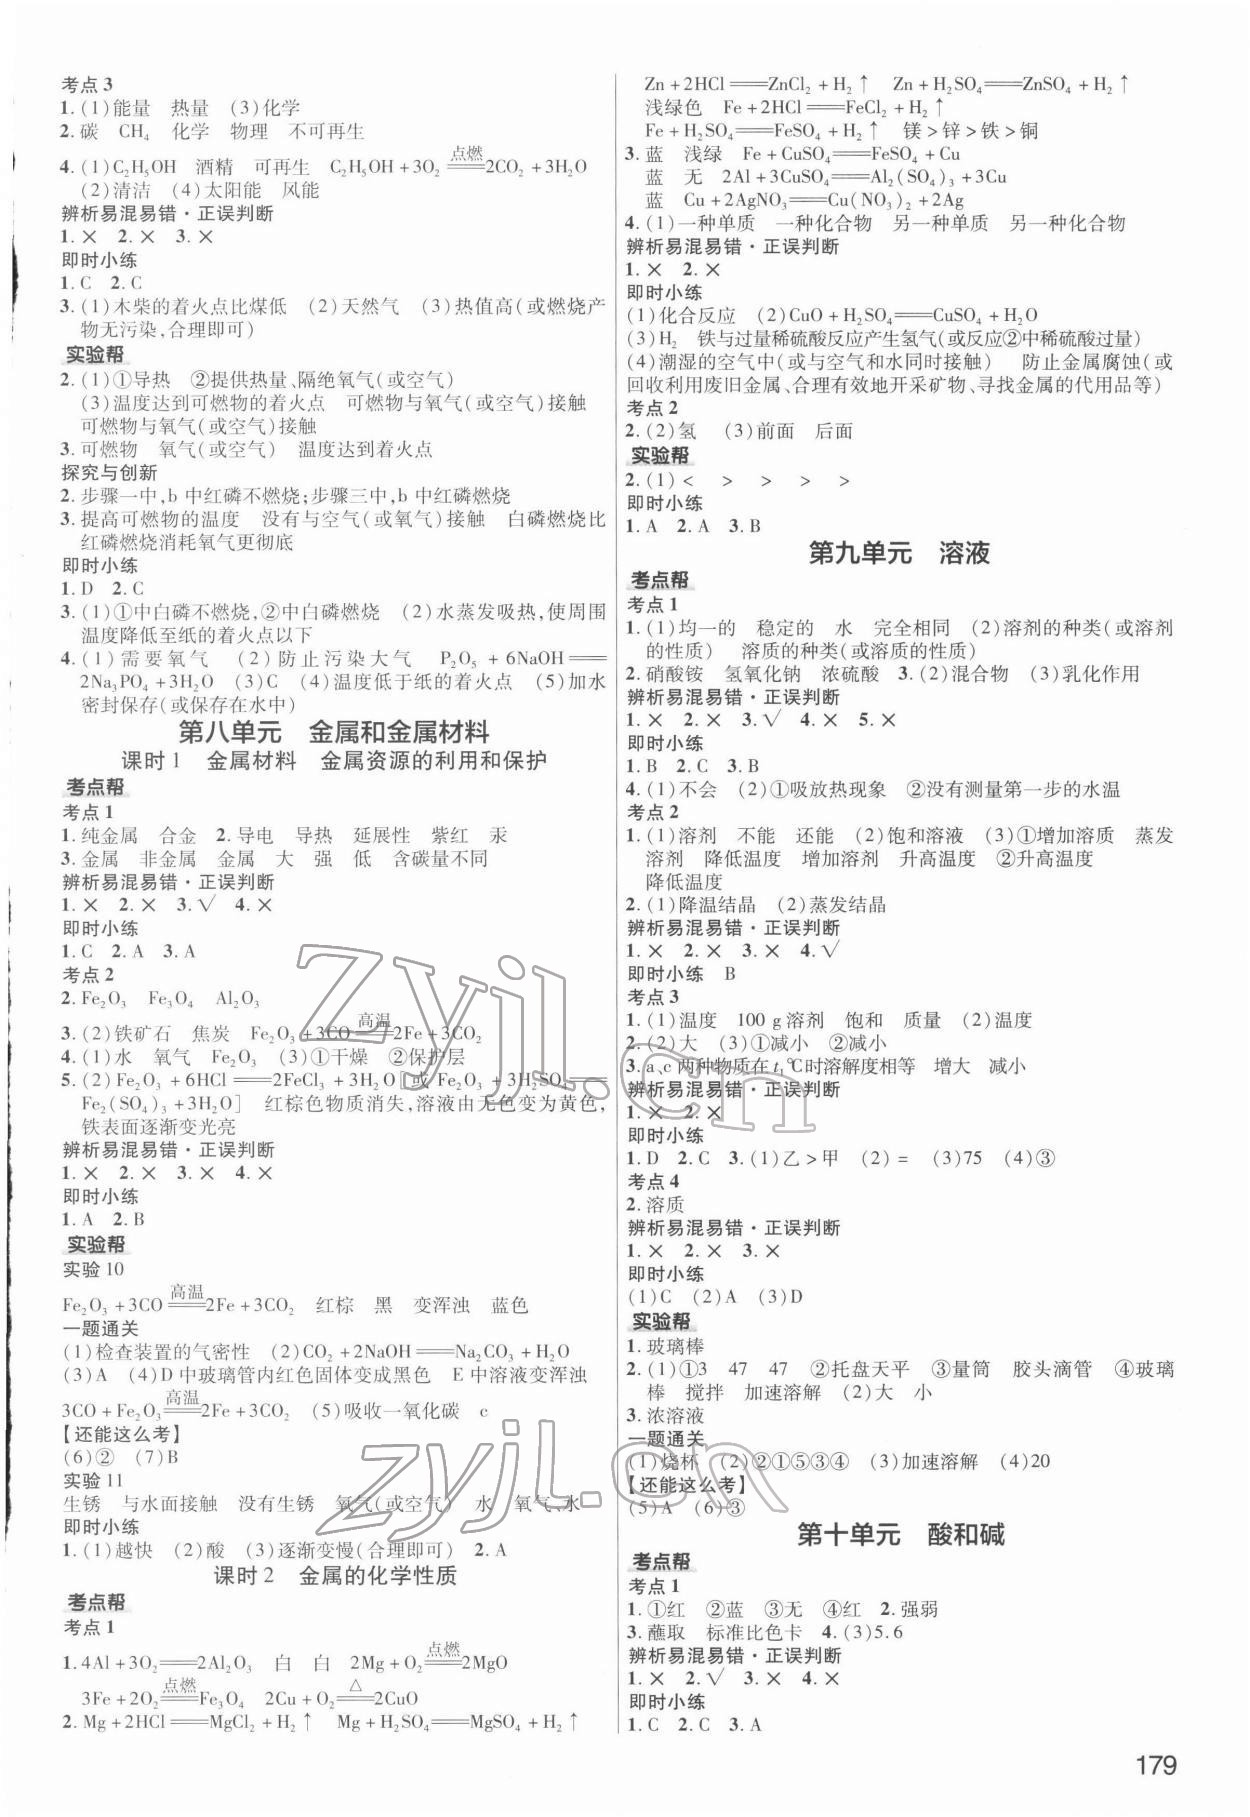 考点3
1. (1)能量 热量 (3)化学
2. 碳 CH₄ 化学 物理 不可再生
4. (1)C₂H₅OH 酒精 可再生 C₂H₅OH+3O₂ 点燃 2CO₂+3H₂O
(2)清洁 (4)太阳能 风能
辨析易混易错·正误判断
1. × 2. × 3. ×
即时小练
1. C 2. C
3. (1)木柴的着火点比煤低 (2)天然气 (3)热值高(或燃烧产
物无污染,合理即可)
实验帮
2. (1)①导热 ②提供热量、隔绝氧气(或空气)
(3)温度达到可燃物的着火点 可燃物与氧气(或空气)接触
可燃物与氧气(或空气)接触
3. 可燃物 氧气(或空气) 温度达到着火点
探究与创新
2. 步骤一中,b 中红磷不燃烧;步骤三中,b 中红磷燃烧
3. 提高可燃物的温度 没有与空气(或氧气)接触 白磷燃烧比
红磷燃烧消耗氧气更彻底
即时小练
1. D 2. C
3. (1)①中白磷不燃烧,②中白磷燃烧 (2)水蒸发吸热,使周围
温度降低至纸的着火点以下
4. (1)需要氧气 (2)防止污染大气 P₂O₅+6NaOH══
2Na₃PO₄+3H₂O (3)C (4)温度低于纸的着火点 (5)加水
密封保存(或保存在水中)
第八单元 金属和金属材料
课时1 金属材料 金属资源的利用和保护
考点帮
考点1
1. 纯金属 合金 2. 导电 导热 延展性 紫红 汞
3. 金属 非金属 金属 大 强 低 含碳量不同
辨析易混易错·正误判断
1. × 2. × 3. √ 4. ×
即时小练
1. C 2. A 3. A
考点2
2. Fe₂O₃ Fe₃O₄ Al₂O₃
3. (2)铁矿石 焦炭 Fe₂O₃+3CO 高温 2Fe+3CO₂
4. (1)水 氧气 Fe₂O₃ (3)①干燥 ②保护层
5. (2)Fe₂O₃+6HCl══2FeCl₃+3H₂O[或 Fe₂O₃+3H₂SO₄══
Fe₂(SO₄)₃+3H₂O] 红棕色物质消失,溶液由无色变为黄色,
铁表面逐渐变光亮
辨析易混易错·正误判断
1. × 2. × 3. × 4. ×
即时小练
1. A 2. B
实验帮
实验10
Fe₂O₃+3CO 高温 2Fe+3CO₂ 红棕 黑 变浑浊 蓝色
一题通关
(1)检查装置的气密性 (2)CO₂+2NaOH══Na₂CO₃+H₂O
(3)A (4)D 中玻璃管内红色固体变成黑色 E 中溶液变浑浊
3CO+Fe₂O₃ 高温 2Fe+3CO₂ (5)吸收一氧化碳 c
【还能这么考】
(6)② (7)B
实验11
生锈 与水面接触 没有生锈 氧气(或空气) 水 氧气、水
即时小练
1. (1)越快 (2)酸 (3)逐渐变慢(合理即可) 2. A
课时2 金属的化学性质
考点帮
考点1
1. 4Al+3O₂══2Al₂O₃ 白 白 2Mg+O₂ 点燃 2MgO
3Fe+2O₂ 点燃 Fe₃O₄ 2Cu+O₂ △ 2CuO
2. Mg+2HCl══MgCl₂+H₂↑ Mg+H₂SO₄══MgSO₄+H₂↑
Zn+2HCl══ZnCl₂+H₂↑ Zn+H₂SO₄══ZnSO₄+H₂↑
浅绿色 Fe+2HCl══FeCl₂+H₂↑
Fe+H₂SO₄══FeSO₄+H₂↑ 镁>锌>铁>铜
3. 蓝 浅绿 Fe+CuSO₄══FeSO₄+Cu
蓝 无 2Al+3CuSO₄══Al₂(SO₄)₃+3Cu
蓝 Cu+2AgNO₃══Cu(NO₃)₂+2Ag
4. (1)一种单质 一种化合物 另一种单质 另一种化合物
辨析易混易错·正误判断
1. × 2. ×
即时小练
(1)化合反应 (2)CuO+H₂SO₄══CuSO₄+H₂O
(3)H₂ 铁与过量稀硫酸反应产生氢气(或反应②中稀硫酸过量)
(4)潮湿的空气中(或与空气和水同时接触) 防止金属腐蚀(或
回收利用废旧金属、合理有效地开采矿物、寻找金属的代用品等)
考点2
2. (2)氢 (3)前面 后面
实验帮
2. (1)< > > > >
即时小练
1. A 2. A 3. B
第九单元 溶液
考点帮
考点1
1. (1)均一的 稳定的 水 完全相同 (2)溶剂的种类(或溶剂
的性质) 溶质的种类(或溶质的性质)
2. 硝酸铵 氢氧化钠 浓硫酸 3. (2)混合物 (3)乳化作用
辨析易混易错·正误判断
1. × 2. × 3. √ 4. × 5. ×
即时小练
1. B 2. C 3. B
4. (1)不会 (2)①吸放热现象 ②没有测量第一步的水温
考点2
1. (1)溶剂 不能 还能 (2)饱和溶液 (3)①增加溶质 蒸发
溶剂 降低温度 增加溶剂 升高温度 ②升高温度
降低温度
2. (1)降温结晶 (2)蒸发结晶
辨析易混易错·正误判断
1. × 2. × 3. × 4. √
即时小练 B
考点3
1. (1)温度 100 g溶剂 饱和 质量 (2)温度
2. (2)大 (3)①减小 ②减小
3. a、c两种物质在t₁℃时溶解度相等 增大 减小
辨析易混易错·正误判断
1. × 2. ×
即时小练
1. D 2. C 3. (1)乙>甲 (2)= (3)75 (4)③
考点4
2. 溶质
辨析易混易错·正误判断
1. × 2. × 3. ×
即时小练
(1)C (2)A (3)D
实验帮
1. 玻璃棒
2. (1)①3 47 47 ②托盘天平 ③量筒 胶头滴管 ④玻璃
棒 搅拌 加速溶解 (2)大 小
3. 浓溶液
一题通关
(1)烧杯 (2)②①⑤③④ (3)加速溶解 (4)20
【还能这么考】
(5)A (6)③
第十单元 酸和碱
考点帮
考点1
1. ①红 ②蓝 ③无 ④红 2. 强弱
3. 蘸取 标准比色卡 4. (3)5.6
辨析易混易错·正误判断
1. × 2. √ 3. × 4. ×
即时小练
1. C 2. C 3. A
179
zyjl.cn
zyjl.cn